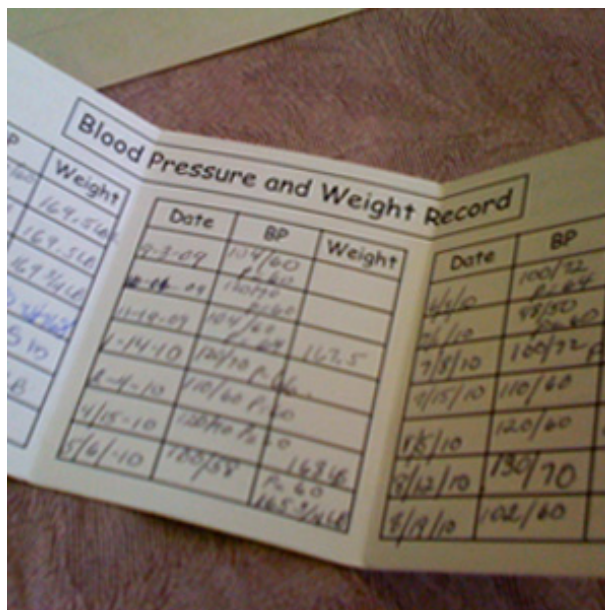 Blood Pressure and Weight Record
P Weight
169.5LB
169.5LB
169 3/4LB
Date BP Weight
9-3-09 104/60
P. 60
09 120/70
P. 60
11-19-09 104/60
P. 64 167.5
1-14-10 120/70
-4-10 110/60 P. 60
4/15-10 120/70 P. 60
168 LB
5/6/-10 100/58 P. 60
165 3/4 LB
Date BP
100/72
P. 64
/10 98/50
P. 60
7/8/10 100/72 P
7/15/10 110/60
8/5/10 120/60
8/12/10 130/70
8/19/10 102/60